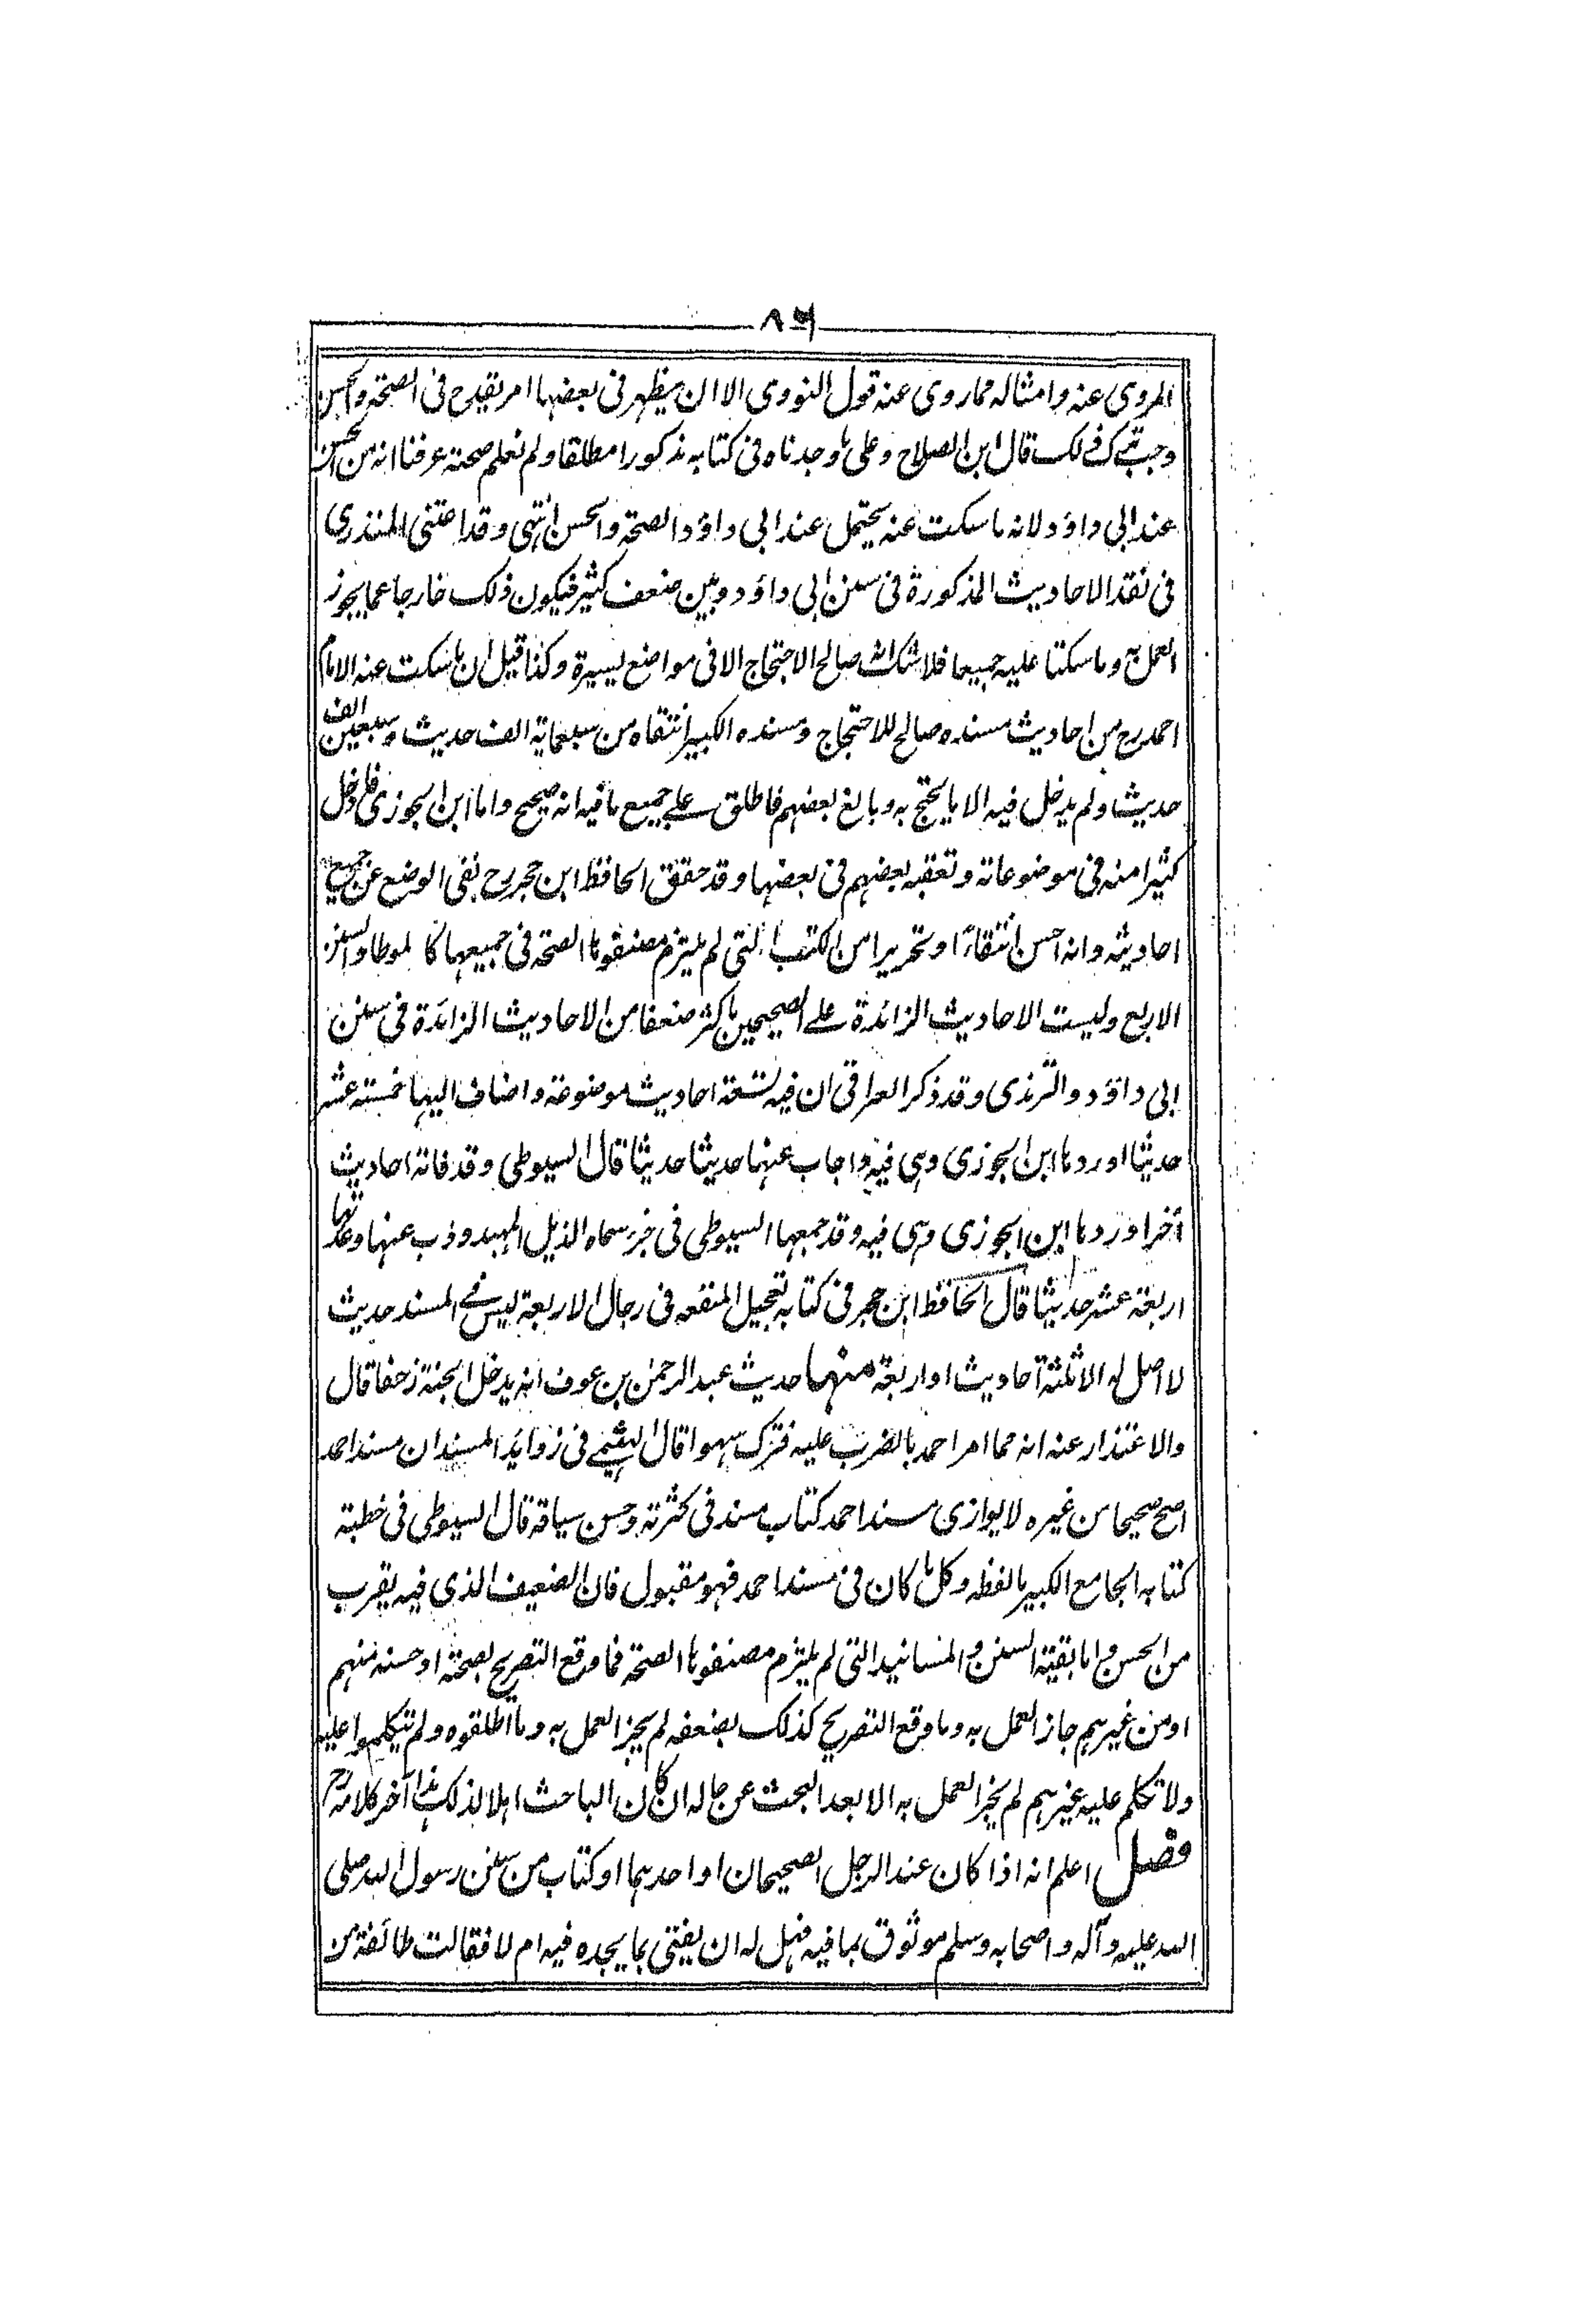 ٨٦
المروى عنه وامثاله مما روى عنه قول النووى الا ان يظهر فى بعضها امر يقدح فى الصحة والحسن
وجب ترك ذلك قال ابن الصلاح وعلى ما وجدناه فى كتابه مذكورا مطلقا ولم نعلم صحته عرفنا انه من الحسن
عند ابى داؤد لانه ما سكت عنه يحتمل عند ابى داؤد الصحة والحسن انتهى وقد اعتنى المنذرى
فى نقد الاحاديث المذكورة فى سنن ابى داؤد وبين ضعف كثير فيكون ذلك خارجا عما يجوز
العمل به وما سكتا عليه جميعا فلا شك انه صالح الاحتجاج الا فى مواضع يسيرة وكذا قيل ان ما سكت عنه الامام
احمد رح من احاديث مسنده صالح للاحتجاج ومسنده الكبير انتقاه من سبعماية الف حديث وسبعين الف
حديث ولم يدخل فيه الا ما يحتج به وبالغ بعضهم فاطلق على جميع ما فيه انه صحيح واما ابن الجوزى فادخل
كثيرا منه فى موضوعاته وتعقبه بعضهم فى بعضها وقد حقق الحافظ ابن حجر رح نفى الوضع عن جميع
احاديثه وانه احسن انتقاءً وتحريرا من الكتب التى لم يلتزم مصنفوها الصحة فى جميعها كالموطا والسنن
الاربع وليست الاحاديث الزائدة على الصحيحين باكثر ضعفا من الاحاديث الزائدة فى سنن
ابى داؤد والترمذى وقد ذكر العراقى ان فيه تسعة احاديث موضوعة واضاف اليها خمسة عشر
حديثا اوردها ابن الجوزى وهى فيه واجاب عنها حديثا حديثا قال السيوطى وقد فاته احاديث
أخر اوردها ابن الجوزى وهى فيه وقد جمعها السيوطى فى جزء سماه الذيل الممهد وذب عنها وعدتها
اربعة عشر حديثا قال الحافظ ابن حجر فى كتابه تعجيل المنفعه فى رجال الاربعة ليس فى المسند حديث
لا اصل له الا ثلثة احاديث او اربعة منها حديث عبد الرحمن بن عوف انه يدخل الجنة زحفا قال
والاعتذار عنه انه مما امر احمد بالضرب عليه فترك سهوا قال الهيثمى فى زوائد المسند ان مسند احمد
اصح صحيحا من غيره لا يوازى مسند احمد كتاب مسند فى كثرته وحسن سياقه قال السيوطى فى خطبة
كتابه الجامع الكبير ما لفظه وكل ما كان فى مسند احمد فهو مقبول فان الضعيف الذى فيه يقرب
من الحسن واما بقية السنن والمسانيد التى لم يلتزم مصنفوها الصحة فما وقع التصريح بصحته او حسنه منهم
او من غيرهم جاز العمل به وما وقع التصريح كذلك بضعفه لم يجز العمل به وما اطلقوه ولم يتكلموا عليه
ولا تكلم عليه غيرهم لم يجز العمل به الا بعد البحث عن حاله ان كان الباحث اهلا لذلك هذا آخر كلامه رح
فصل اعلم انه اذا كان عند الرجل الصحيحان او احدهما او كتاب من سنن رسول الله صلى
الله عليه وآله واصحابه وسلم موثوق بما فيه فهل له ان يفتى بما يجده فيه ام لا فقالت طائفة من